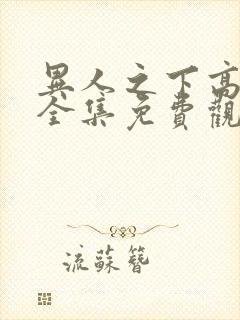 異人之下高
全集免費觀
流蘇簪